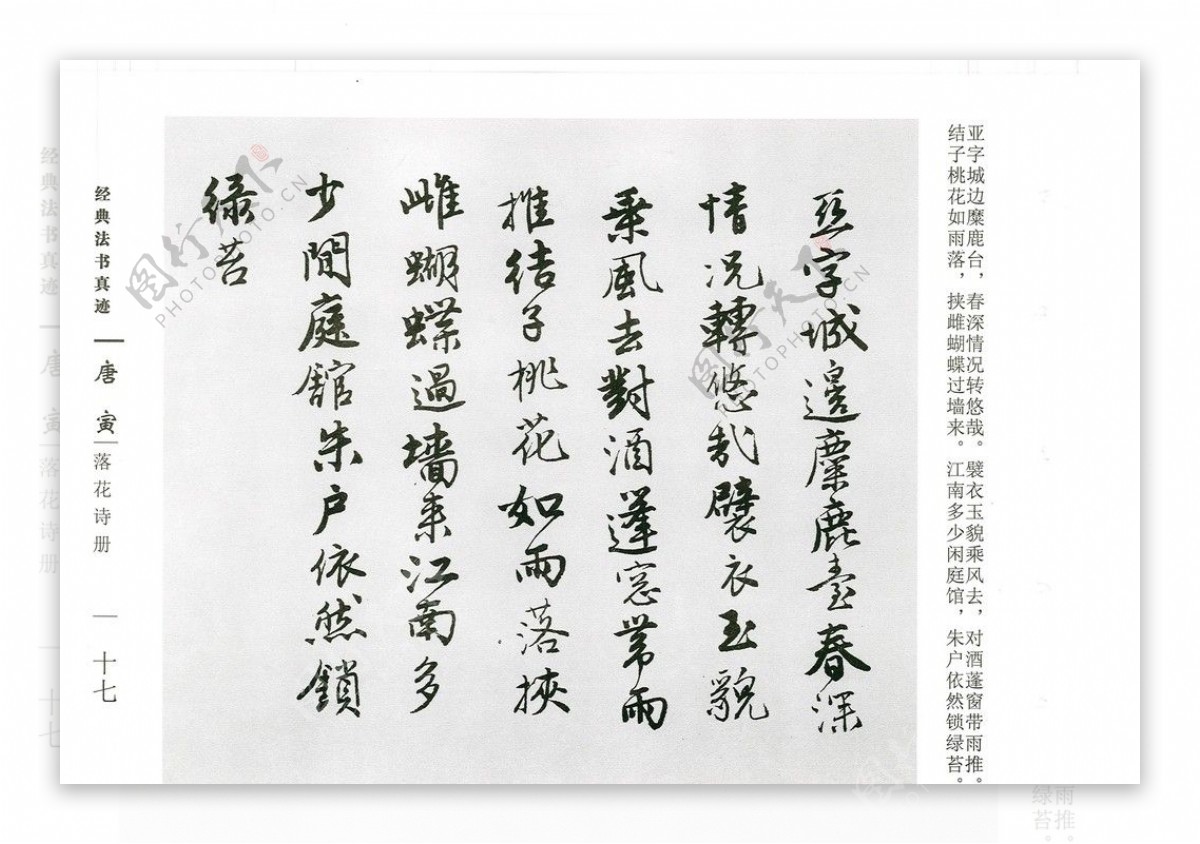 亚字城边糜鹿台，春深情况转悠哉。襞衣玉貌乘风去，对酒蓬窗带雨推。
结子桃花如雨落，挟雌蝴蝶过墙来。江南多少闲庭馆，朱户依然锁绿苔。
亞字城邊麋鹿臺春深
情況轉悠哉襞衣玉貌
乘風去對酒蓬窓帶雨
推結子桃花如雨落挾
雌蝴蝶過墻來江南多
少閒庭館朱户依然鎖
綠苔
经典法书真迹
唐寅
落花诗册
十七
图行天下
PHOTOPHOTO.CN
图行天下
PHOTOPHOTO.CN